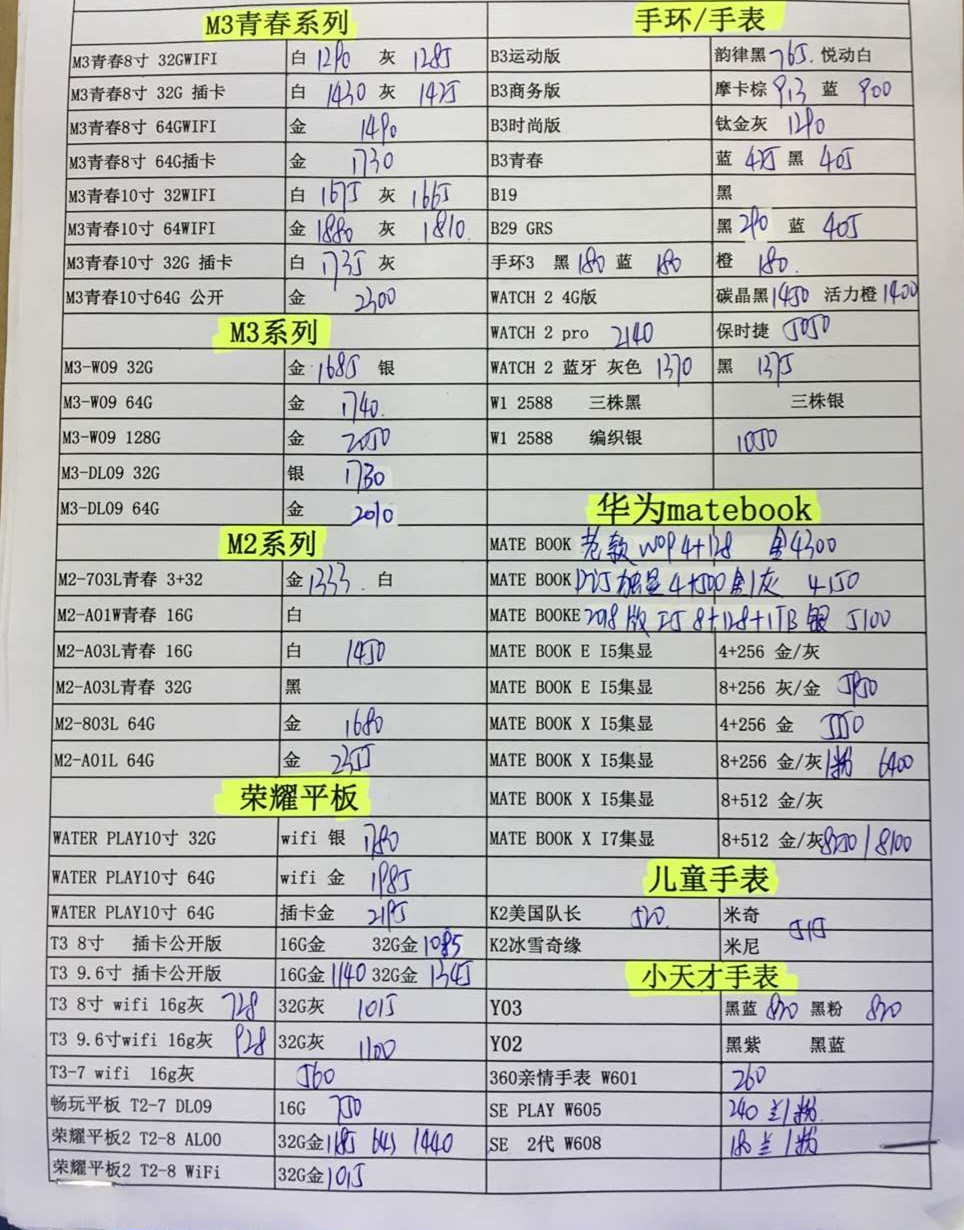 M3青春系列
M3青春8寸 32GWIFI 白 1290 灰 1285
M3青春8寸 32G 插卡 白 1430 灰 1425
M3青春8寸 64GWIFI 金 1490
M3青春8寸 64G插卡 金 1730
M3青春10寸 32WIFI 白 1675 灰 1665
M3青春10寸 64WIFI 金 1880 灰 1810
M3青春10寸 32G 插卡 白 1735 灰
M3青春10寸64G 公开 金 2300
M3系列
M3-W09 32G 金 1685 银
M3-W09 64G 金 1740
M3-W09 128G 金 2050
M3-DL09 32G 银 1730
M3-DL09 64G 金 2010
M2系列
M2-703L青春 3+32 金 1333 白
M2-A01W青春 16G 白
M2-A03L青春 16G 白 1450
M2-A03L青春 32G 黑
M2-803L 64G 金 1680
M2-A01L 64G 金 2355
荣耀平板
WATER PLAY10寸 32G wifi 银 1780
WATER PLAY10寸 64G wifi 金 1985
WATER PLAY10寸 64G 插卡金 2195
T3 8寸 插卡公开版 16G金 32G金 1085
T3 9.6寸 插卡公开版 16G金 1140 32G金 1345
T3 8寸 wifi 16g灰 728 32G灰 1015
T3 9.6寸wifi 16g灰 928 32G灰 1100
T3-7 wifi 16g灰 560
畅玩平板 T2-7 DL09 16G 750
荣耀平板2 T2-8 AL00 32G金 1185 1440
荣耀平板2 T2-8 WiFi 32G金 1015
手环/手表
B3运动版 韵律黑 765. 悦动白
B3商务版 摩卡棕 913 蓝 900
B3时尚版 钛金灰 1290
B3青春 蓝 425 黑 405
B19 黑
B29 GRS 黑 290 蓝 405
手环3 黑 180 蓝 180 橙 180.
WATCH 2 4G版 碳晶黑 1450 活力橙 1400
WATCH 2 pro 2140 保时捷 5050
WATCH 2 蓝牙 灰色 1370 黑 1375
W1 2588 三株黑 三株银
W1 2588 编织银 1050
华为matebook
MATE BOOK 老款 W09 4+128 金 4300
MATE BOOK D 独显 4+500 金/灰 4150
MATE BOOKE 2018版 I5 8+128+1TB 银 5100
MATE BOOK E I5集显 4+256 金/灰
MATE BOOK E I5集显 8+256 灰/金 5950
MATE BOOK X I5集显 4+256 金 5550
MATE BOOK X I5集显 8+256 金/灰/粉 6400
MATE BOOK X I5集显 8+512 金/灰
MATE BOOK X I7集显 8+512 金/灰 8250/8100
儿童手表
K2美国队长 520 米奇 515
K2冰雪奇缘 米尼
小天才手表
Y03 黑蓝 820 黑粉 820
Y02 黑紫 黑蓝
360亲情手表 W601 260
SE PLAY W605 240 兰/粉
SE 2代 W608 兰/粉